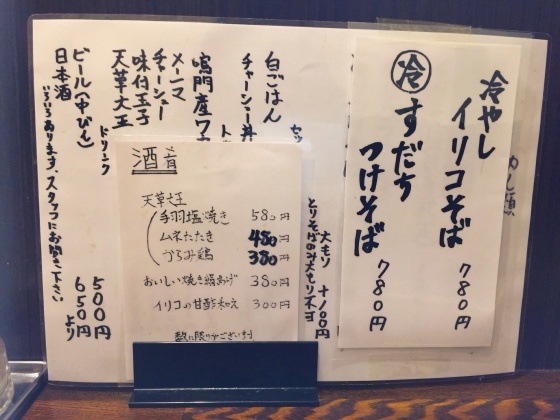 冷やし
イリコそば 780円
冷 すだち
つけそば 780円
めん類
大もり +100円
とりそばのみ大もり不可
白ごはん
チャーシュー丼
鳴門産ワカ
メンマ
チャーシュー
味付玉子
天草大王
ドリンク
ビール(中びん) 500円
日本酒 650円より
いろいろあります。スタッフにお聞き下さい
酒肴
天草大王
手羽塩焼き 580円
ムネたたき 480円
がらみ鶏 380円
おいしい焼き絹あげ 380円
イリコの甘酢和え 300円
数に限りがございます